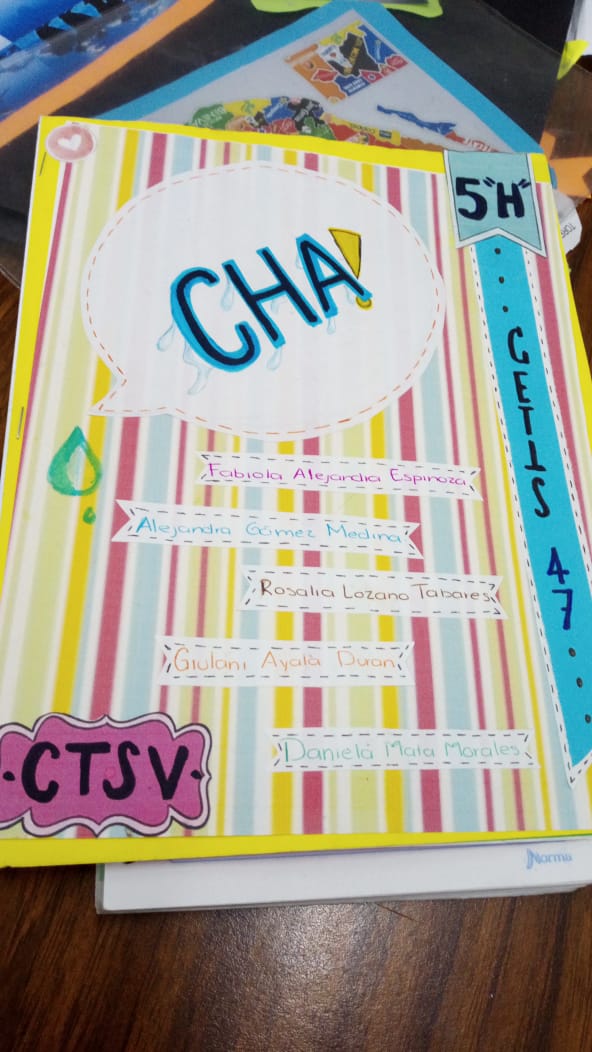 CHA!
5 "H"
CETIS 47
Fabiola Alejandia Espinoza
Alejandra Gómez Medina
Rosalia Lozano Tabares
Giulani Ayala Duran
Daniela Mata Morales
CTSV
Norma